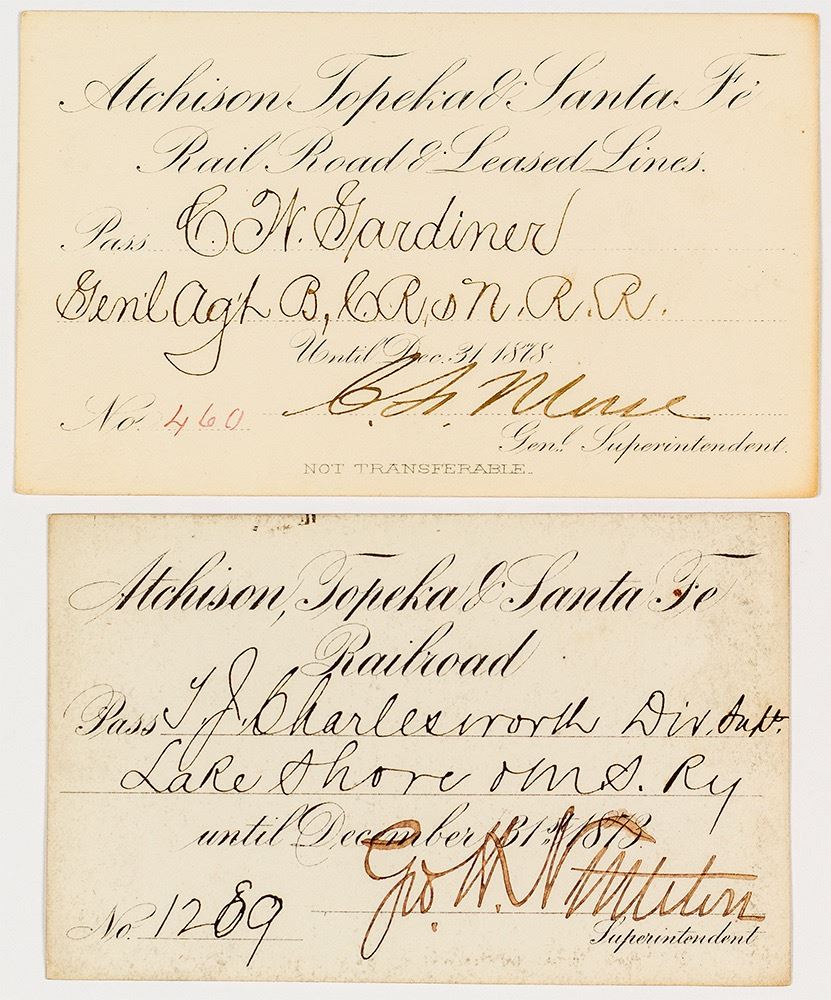 Atchison Topeka & Santa Fé
Rail Road & Leased Lines.
Pass C. W. Gardiner
Gen'l Agt B, C R, & N. R. R.
Until Dec. 31 1878.
No. 460
C. F. Morse
Genl. Superintendent.
NOT TRANSFERABLE.
Atchison, Topeka & Santa Fe
Railroad
Pass T. J. Charlesworth Div. Supt.
Lake Shore & M S. Ry
until December 31st 1873.
Geo. H. Nettleton
No. 1289
Superintendent